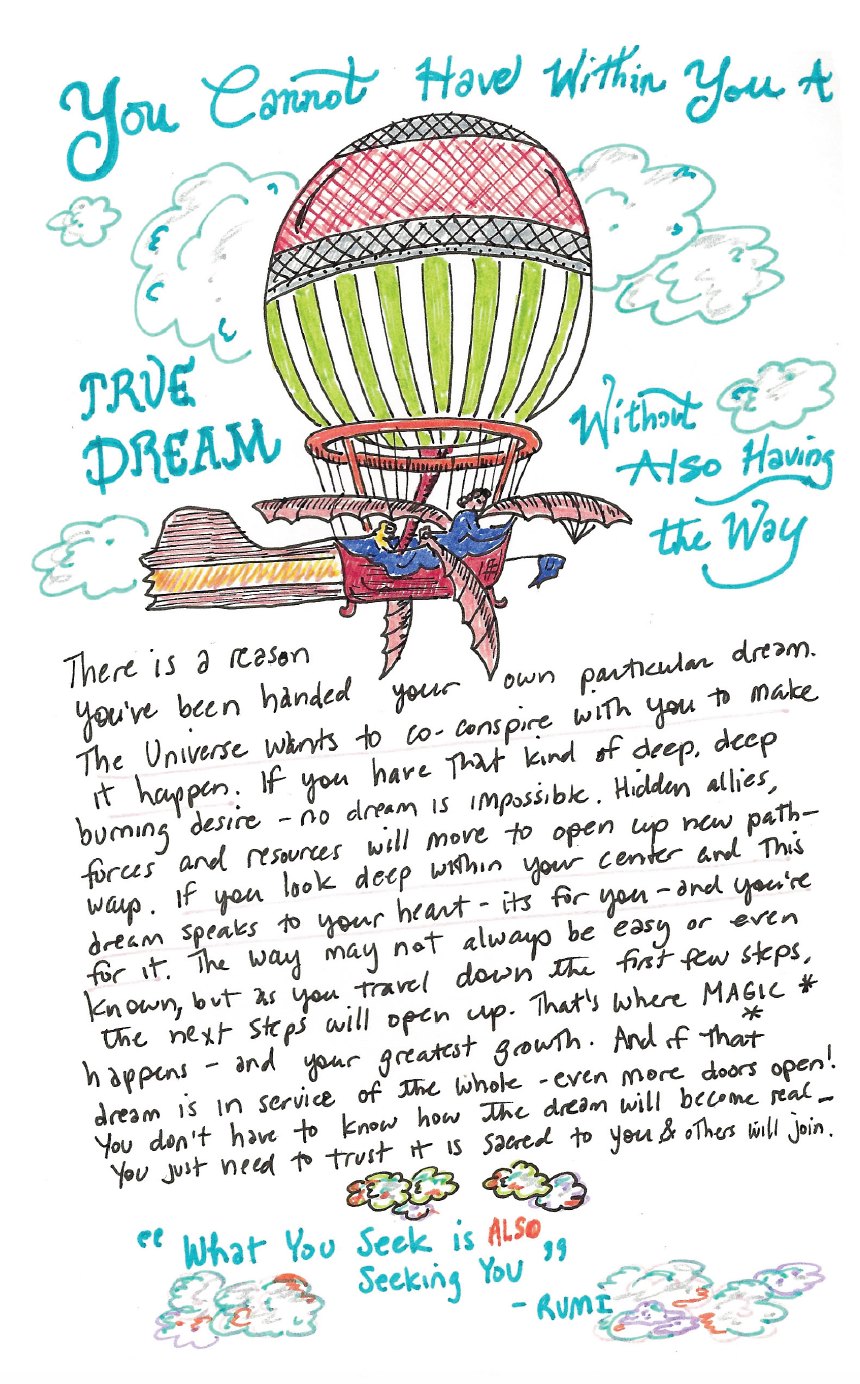 You Cannot Have Within You A
TRUE
DREAM
Without
Also Having
the Way
There is a reason
you've been handed your own particular dream.
The Universe wants to co-conspire with you to make
it happen. If you have that kind of deep, deep
burning desire - no dream is impossible. Hidden allies,
forces and resources will move to open up new path-
ways. If you look deep within your center and this
dream speaks to your heart - its for you - and you're
for it. The way may not always be easy or even
known, but as you travel down the first few steps,
the next steps will open up. That's where MAGIC *
happens - and your greatest growth. And if that *
dream is in service of the whole - even more doors open!
You don't have to know how the dream will become real -
You just need to trust it is sacred to you & others will join.
"What You Seek is ALSO
Seeking You"
- RUMI